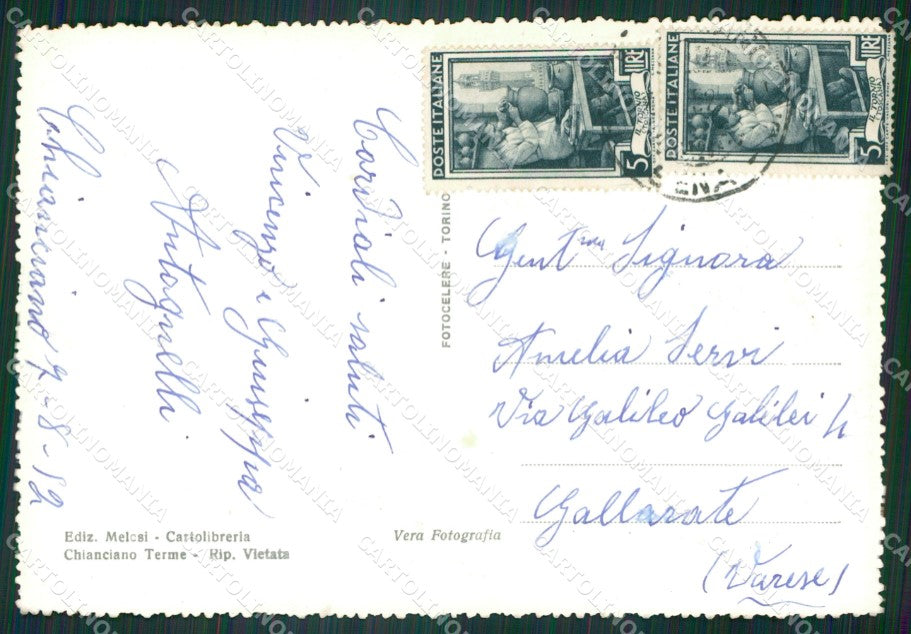 Cordiali saluti
Vincenzo e Giuseppa
Antognelli
Chianciano 7-8-52
POSTE ITALIANE
LIRE 5
IL TORNIO
POSTE ITALIANE
LIRE 5
IL TORNIO
FOTOCELERE - TORINO
Gent ma Signora
Amelia Servi
Via Galileo Galilei 4
Gallarate
(Varese)
Ediz. Melosi - Cartolibreria
Chianciano Terme - Rip. Vietata
Vera Fotografia
CARTOLINOMANIA